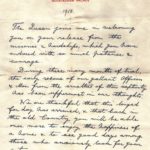 BUCKINGHAM PALACE
1918.
The Queen joins me in welcoming
you on your release from the
miseries & hardships, which you have
endured with so much patience &
courage.
During these many months of trial,
the early rescue of our gallant Officers
& Men from the cruelties of their captivity
has been uppermost in our thoughts.
We are thankful that this longed
for day has arrived, & that back in
the old Country you will be able
once more to enjoy the happiness of
a home & to see good days among
those who anxiously look for your